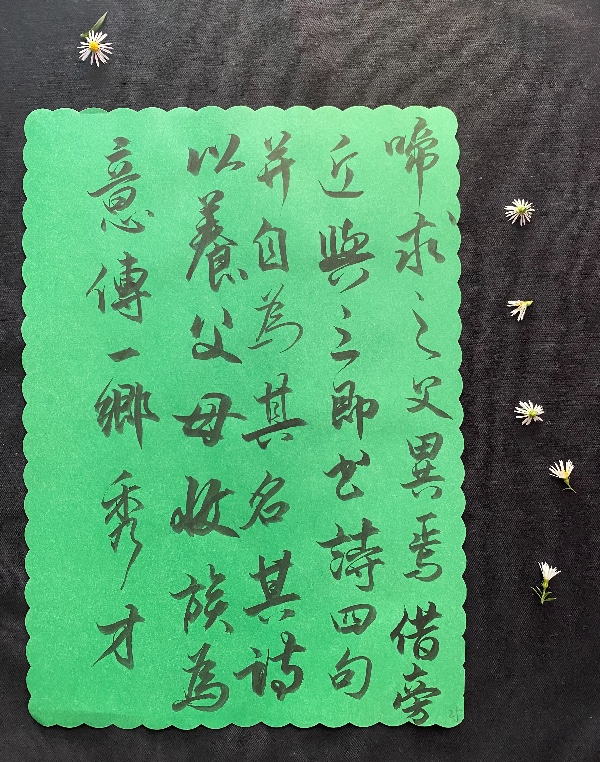 啼求之父異焉借旁
近與之即书詩四句
并自為其名其詩
以養父母收族為
意傳一鄉秀才